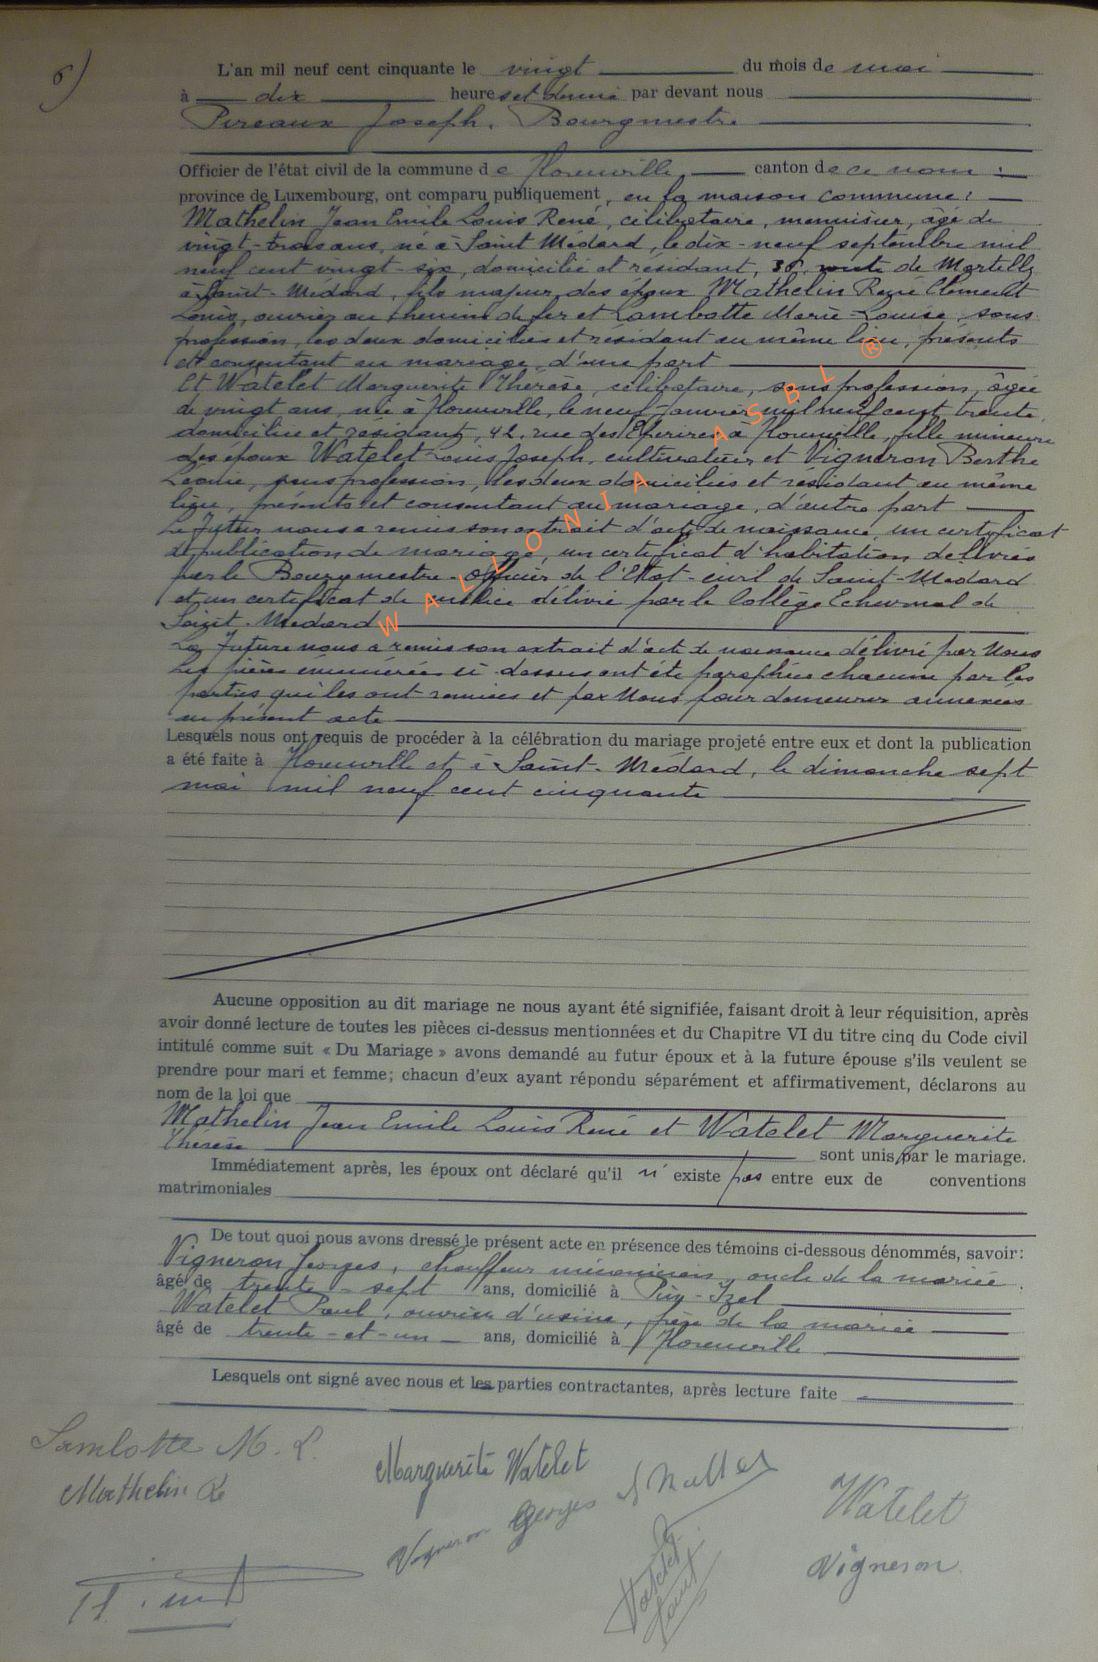 6)
L'an mil neuf cent cinquante le vingt du mois de mai
à dix heures et demie par devant nous
Pireaux Joseph, Bourgmestre
Officier de l'état civil de la commune de Florenville canton de ce nom ;
province de Luxembourg, ont comparu publiquement, en la maison commune :
Mathelin Jean Emile Louis René, célibataire, menuisier, âgé de
vingt-trois ans, né à Saint Médard, le dix-neuf septembre mil
neuf cent vingt-six, domicilié et résidant, 38, route de Martilly
à Saint-Médard, fils majeur des époux Mathelin René Clément
Louis, ouvrier au chemin de fer et Lambotte Marie-Louise, sans
profession, les deux domiciliés et résidant au même lieu, présents
et consentant au mariage, d'une part
Et Watelet Marguerite Thérèse, célibataire, sans profession, âgée
de vingt ans, née à Florenville, le neuf janvier mil neuf cent trente,
domiciliée et résidant, 42, rue des à Florenville, fille mineure
des époux Watelet Louis Joseph, cultivateur et Vigneron Berthe
Léonie, sans profession, les deux domiciliés et résidant au même
lieu, présents et consentant au mariage, d'autre part
Le futur nous a remis son extrait d'acte de naissance, un certificat
de publication de mariage, un certificat d'habitation délivrés
par le Bourgmestre-officier de l'Etat-civil de Saint-Médard
et un certificat de milice délivré par le Collège Echevinal de
Saint-Médard
La future nous a remis son extrait d'acte de naissance délivré par Nous
Les pièces énumérées ci-dessus ont été paraphées chacune par les
parties qui les ont remises et par Nous pour demeurer annexées
au présent acte
Lesquels nous ont requis de procéder à la célébration du mariage projeté entre eux et dont la publication
a été faite à Florenville et à Saint-Médard, le dimanche sept
mai mil neuf cent cinquante
Aucune opposition au dit mariage ne nous ayant été signifiée, faisant droit à leur réquisition, après
avoir donné lecture de toutes les pièces ci-dessus mentionnées et du Chapitre VI du titre cinq du Code civil
intitulé comme suit « Du Mariage » avons demandé au futur époux et à la future épouse s'ils veulent se
prendre pour mari et femme; chacun d'eux ayant répondu séparément et affirmativement, déclarons au
nom de la loi que
Mathelin Jean Emile Louis René et Watelet Marguerite
Thérèse sont unis par le mariage.
Immédiatement après, les époux ont déclaré qu'il n'existe pas entre eux de conventions
matrimoniales
De tout quoi nous avons dressé le présent acte en présence des témoins ci-dessous dénommés, savoir :
Vigneron Georges, chauffeur mécanicien, oncle de la mariée
âgé de trente-sept ans, domicilié à Puy-Izel
Watelet Paul, ouvrier d'usine, frère de la mariée
âgé de trente-et-un ans, domicilié à Florenville
Lesquels ont signé avec nous et les parties contractantes, après lecture faite
Lambotte M. L.
Marguerite Watelet
Mathelin
Vigneron Georges
Watelet
Vigneron
WALLONIA ASBL ®